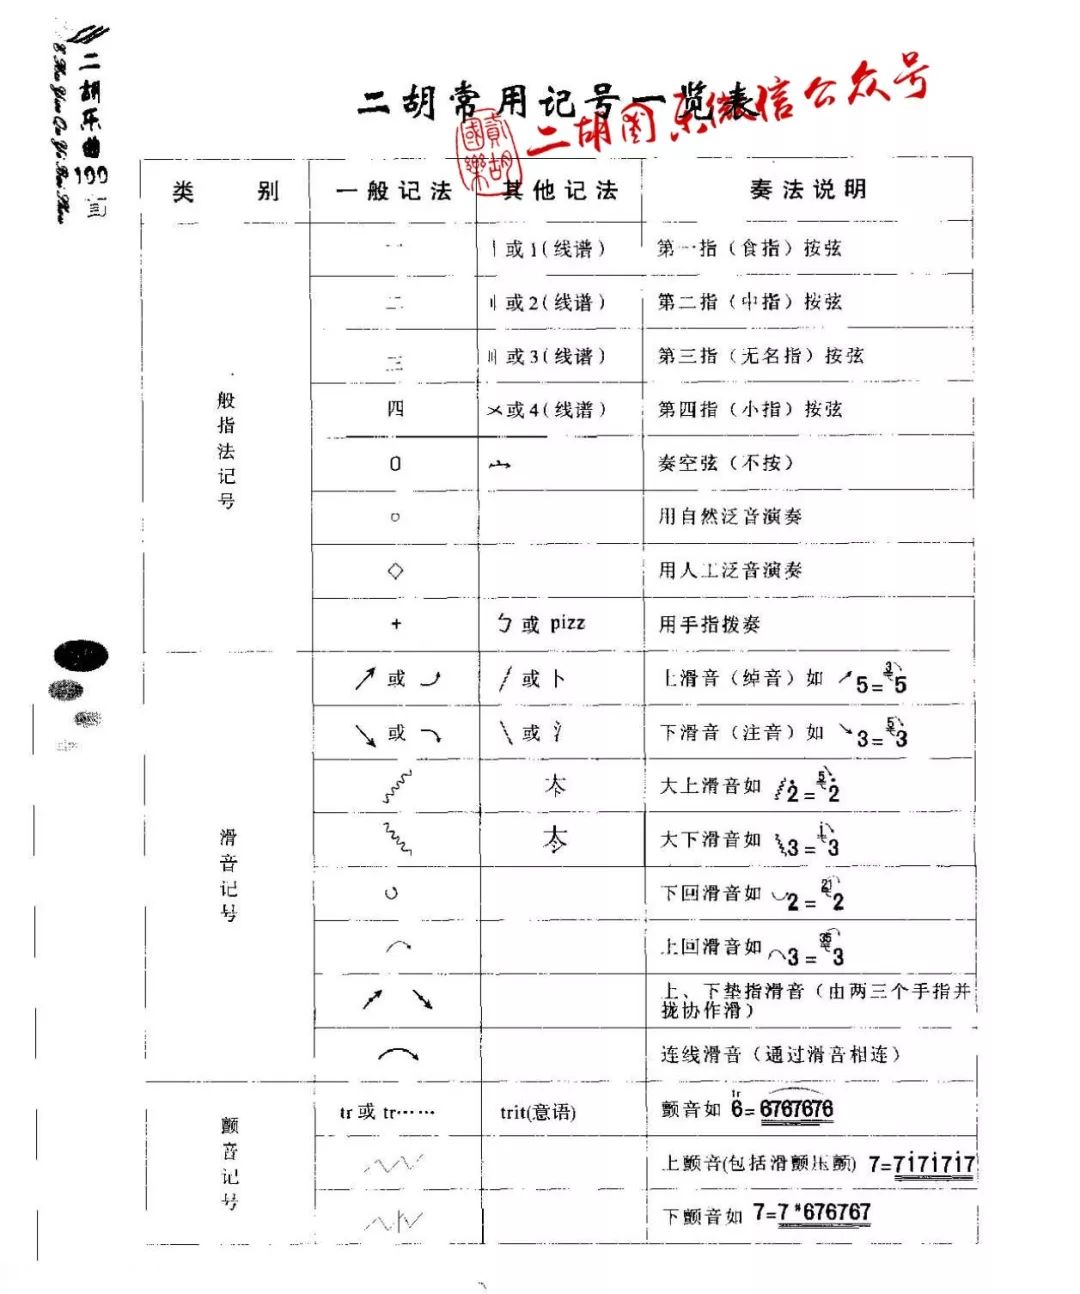 二胡乐曲100首
二胡常用记号一览表
二胡国乐微信公众号
类别 一般记法 其他记法 奏法说明
一般指法记号
一 〡或1(线谱) 第一指（食指）按弦
二 〢或2(线谱) 第二指（中指）按弦
三 〣或3(线谱) 第三指（无名指）按弦
四 〤或4(线谱) 第四指（小指）按弦
0 奏空弦（不按）
○ 用自然泛音演奏
◇ 用人工泛音演奏
+ ㄅ或 pizz 用手指拨奏
滑音记号
或 或 上滑音（绰音）如 5=3 5
或 或 下滑音（注音）如 3=5 3
大上滑音如 2=5 2
大下滑音如 3=i 3
下回滑音如 2=21 2
上回滑音如 3=35 3
上、下垫指滑音（由两三个手指并
拢协作滑）
连线滑音（通过滑音相连）
颤音记号
tr 或 tr…… trit(意语) 颤音如 tr 6=6767676
上颤音(包括滑颤压颤) 7=7i7i7i7
下颤音如 7=7#676767